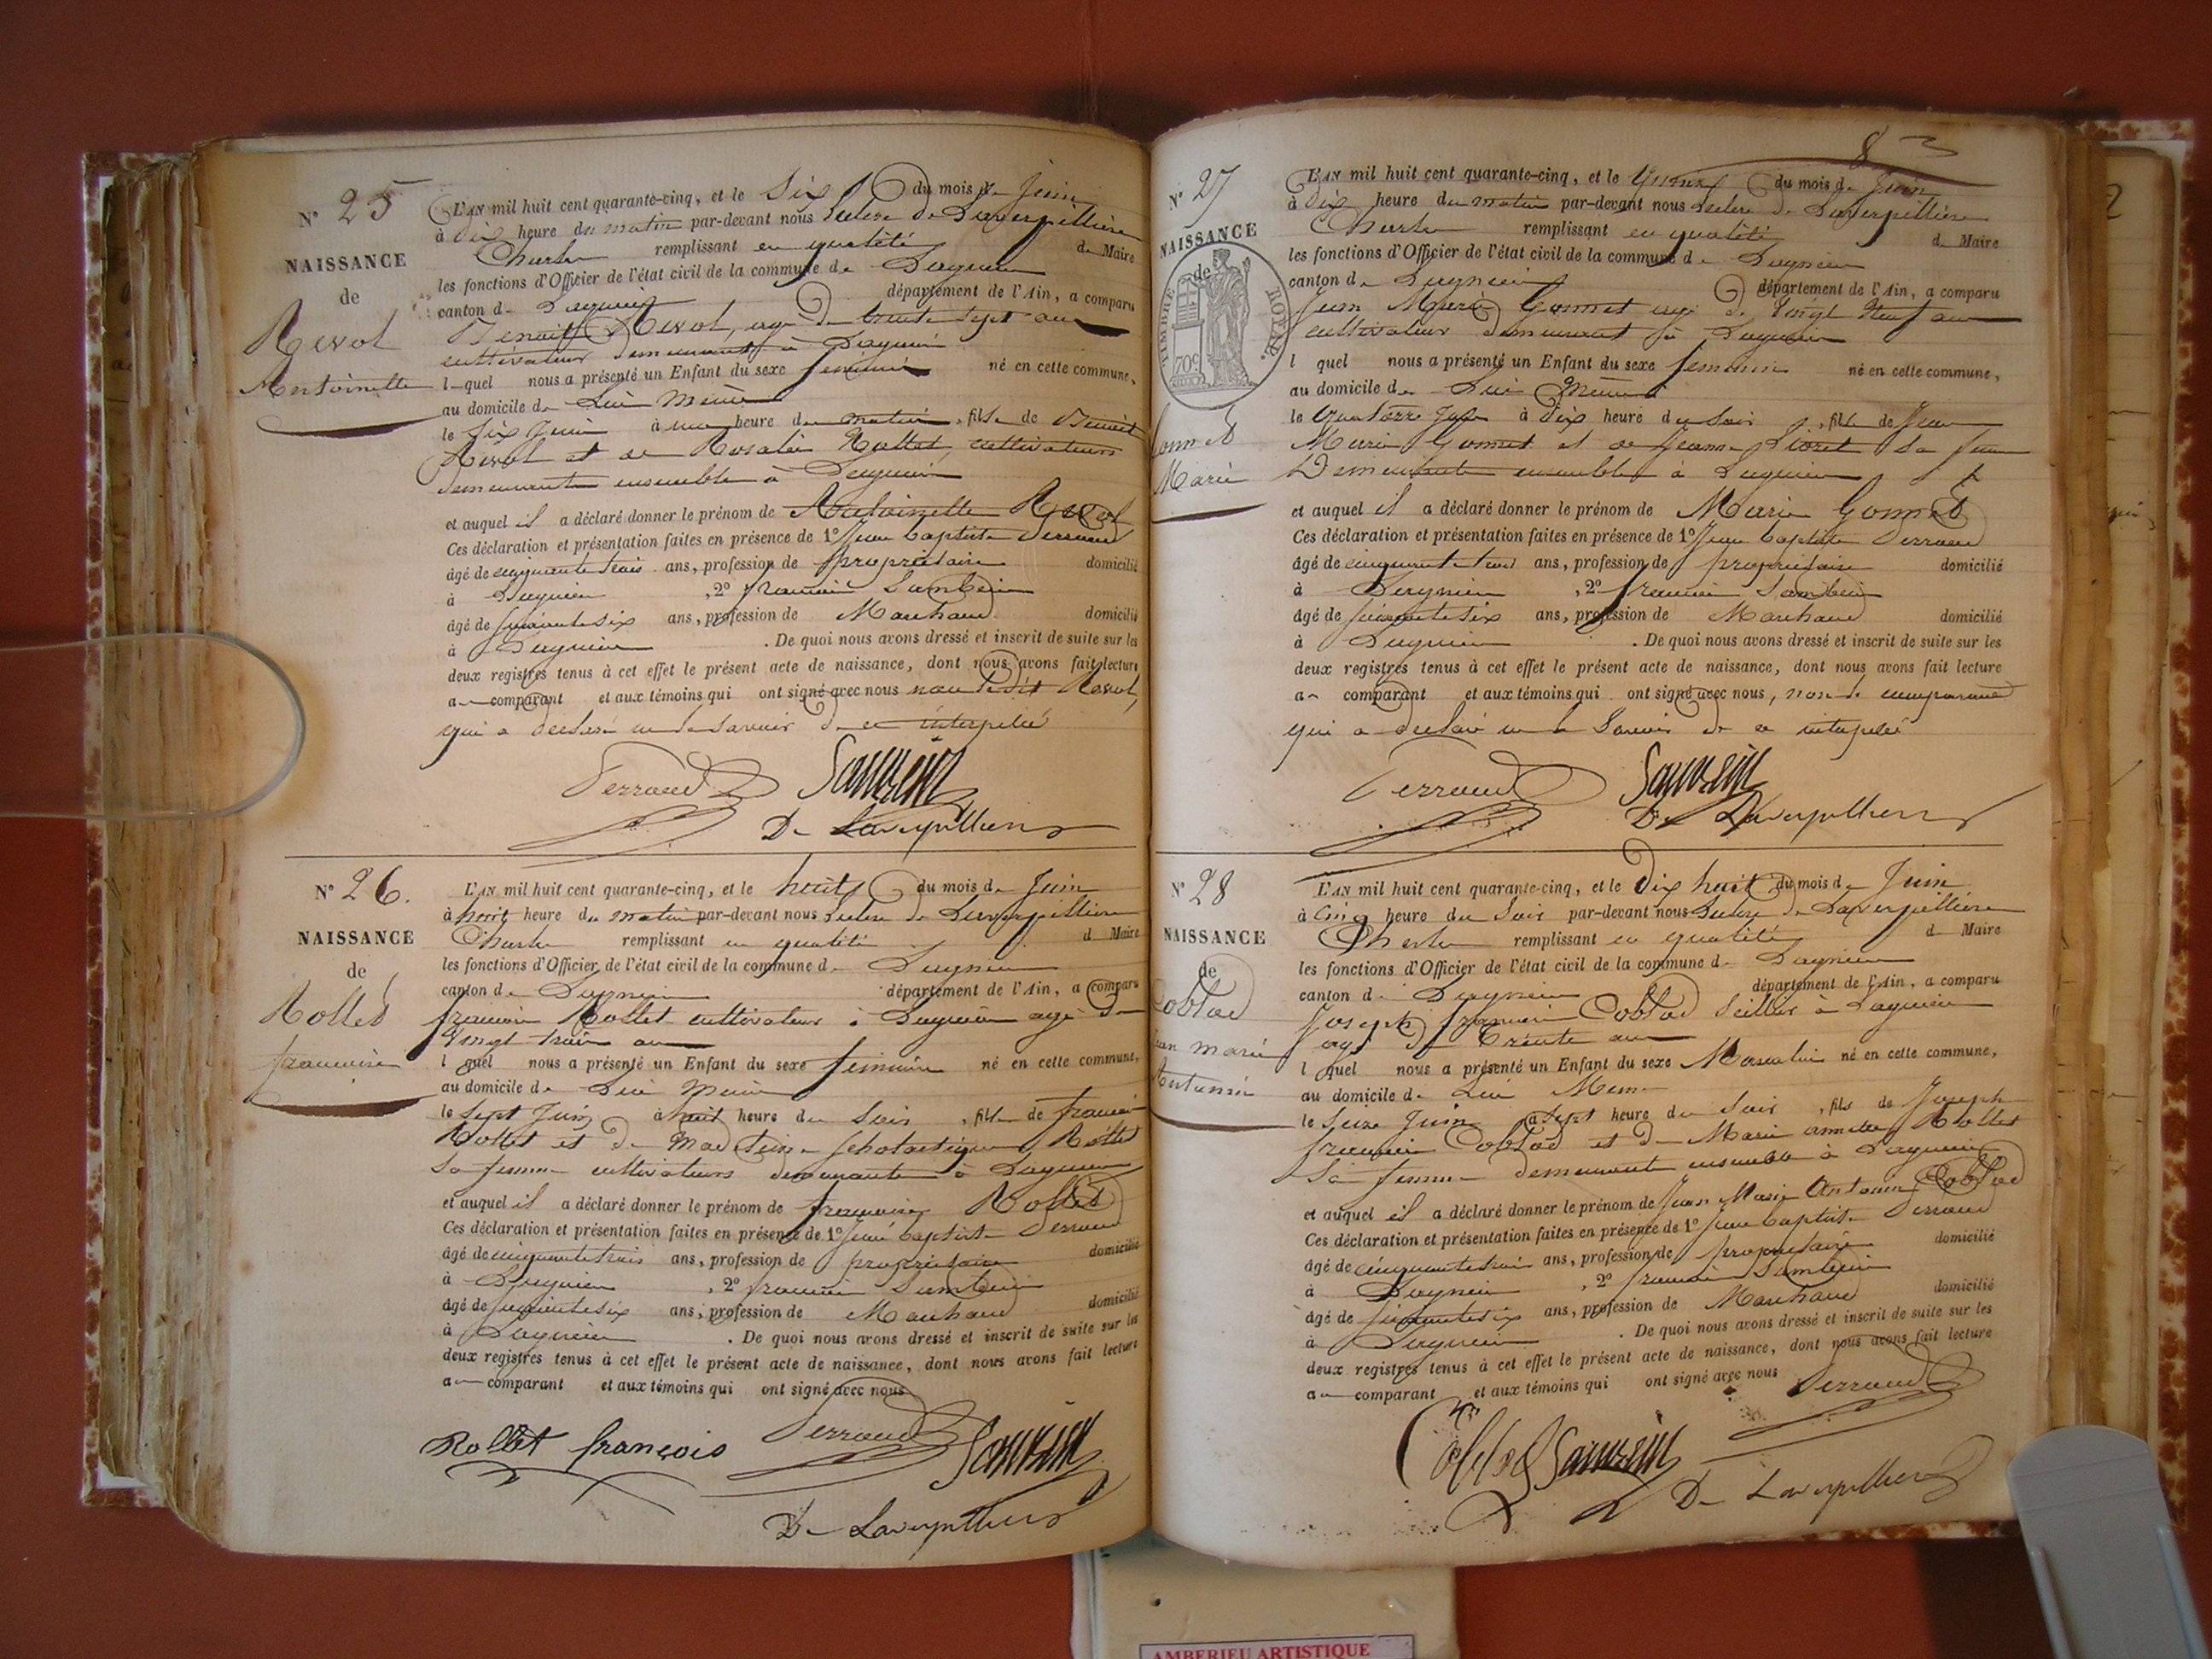 N° 25
NAISSANCE
de
Revol
Antoinette
L'AN mil huit cent quarante-cinq, et le Six du mois de Juin
à dix heure du matin par-devant nous de Laverpillière
Charles remplissant en qualité de Maire
les fonctions d'Officier de l'état civil de la commune de Lagnieu
canton de Lagnieu département de l'Ain, a comparu
Benoit Revol, agé de trente Sept ans
cultivateur demeurant à Lagnieu
l-quel nous a présenté un Enfant du sexe féminin né en cette commune,
au domicile de Lui Même
le Six Juin à une heure du matin, fils de Benoit
Revol et de Rosalie Rollet, cultivateurs
demeurants ensemble à Lagnieu
et auquel il a déclaré donner le prénom de Antoinette Revol
Ces déclaration et présentation faites en présence de 1° Jean Baptiste Perraud
âgé de cinquante trois ans, profession de propriétaire domicilié
à Lagnieu, 2° françois
âgé de six ans, profession de Marchand domicilié
à Lagnieu. De quoi nous avons dressé et inscrit de suite sur les
deux registres tenus à cet effet le présent acte de naissance, dont nous avons fait lecture
au comparant et aux témoins qui ont signé avec nous non ledit Revol,
qui a déclaré ne le savoir de ce interpellé
Perraud
De Laverpillière
N° 26.
NAISSANCE
de
Rollet
françoise
L'AN mil huit cent quarante-cinq, et le huit du mois de Juin
à huit heure du matin par-devant nous de Laverpillière
Charles remplissant en qualité d Maire
les fonctions d'Officier de l'état civil de la commune d. Lagnieu
canton de Lagnieu département de l'Ain, a comparu
françois Rollet cultivateur à Lagnieu agé de
Vingt trois ans
l quel nous a présenté un Enfant du sexe féminin né en cette commune,
au domicile de Lui même
le Sept Juin à huit heure du Soir, fils de françois
Rollet et de Scholastique Rollet
Sa femme cultivateurs demeurants à Lagnieu
et auquel il a déclaré donner le prénom de françoise Rollet
Ces déclaration et présentation faites en présence de 1° Jean Baptiste Perraud
âgé de cinquante trois ans, profession de propriétaire domicilié
à Lagnieu, 2° françois
âgé de six ans, profession de Marchand domicilié
à Lagnieu. De quoi nous avons dressé et inscrit de suite sur les
deux registres tenus à cet effet le présent acte de naissance, dont nous avons fait lecture
au comparant et aux témoins qui ont signé avec nous
Rollet françois Perraud
De Laverpillière
8
N° 27
NAISSANCE
de
TIMBRE ROYAL.
70c
Marie
L'AN mil huit cent quarante-cinq, et le Quinze du mois de Juin
à Dix heure du matin par-devant nous de Laverpillière
Charles remplissant en qualité d. Maire
les fonctions d'Officier de l'état civil de la commune d. Lagnieu
canton de Lagnieu département de l'Ain, a comparu
Jean Marie Gonnet agé de Vingt Neuf ans
cultivateur demeurant à Lagnieu
l quel nous a présenté un Enfant du sexe féminin né en cette commune,
au domicile de Lui Même
le Quatorze Juin à dix heure du soir, fils de Jean
Marie Gonnet et de Jeanne sa femme
Demeurants ensemble à Lagnieu
et auquel il a déclaré donner le prénom de Marie Gonnet
Ces déclaration et présentation faites en présence de 1° Jean Baptiste Perraud
âgé de cinquante trois ans, profession de propriétaire domicilié
à Lagnieu, 2° françois
âgé de six ans, profession de Marchand domicilié
à Lagnieu. De quoi nous avons dressé et inscrit de suite sur les
deux registres tenus à cet effet le présent acte de naissance, dont nous avons fait lecture
au comparant et aux témoins qui ont signé avec nous, non le comparant
qui a déclaré ne le savoir de ce interpellé
Perraud
De Laverpillière
N° 28
NAISSANCE
de
L'AN mil huit cent quarante-cinq, et le Dix huit du mois de Juin
à cinq heure du Soir par-devant nous de Laverpillière
Charles remplissant en qualité d Maire
les fonctions d'Officier de l'état civil de la commune d. Lagnieu
canton de Lagnieu département de l'Ain, a comparu
Joseph françois Sellier à Lagnieu
agé de trente ans
l quel nous a présenté un Enfant du sexe Masculin né en cette commune,
au domicile de Lui Meme
le Seize Juin à Sept heure du Soir, fils de Joseph
françois et de Marie Rollet
Sa femme demeurants ensemble à Lagnieu
et auquel il a déclaré donner le prénom de Jean Marie
Ces déclaration et présentation faites en présence de 1° Jean Baptiste Perraud
âgé de cinquante trois ans, profession de propriétaire domicilié
à Lagnieu, 2° françois
âgé de six ans, profession de Marchand domicilié
à Lagnieu. De quoi nous avons dressé et inscrit de suite sur les
deux registres tenus à cet effet le présent acte de naissance, dont nous avons fait lecture
au comparant et aux témoins qui ont signé avec nous Perraud
De Laverpillière
AMBERIEU ARTISTIQUE